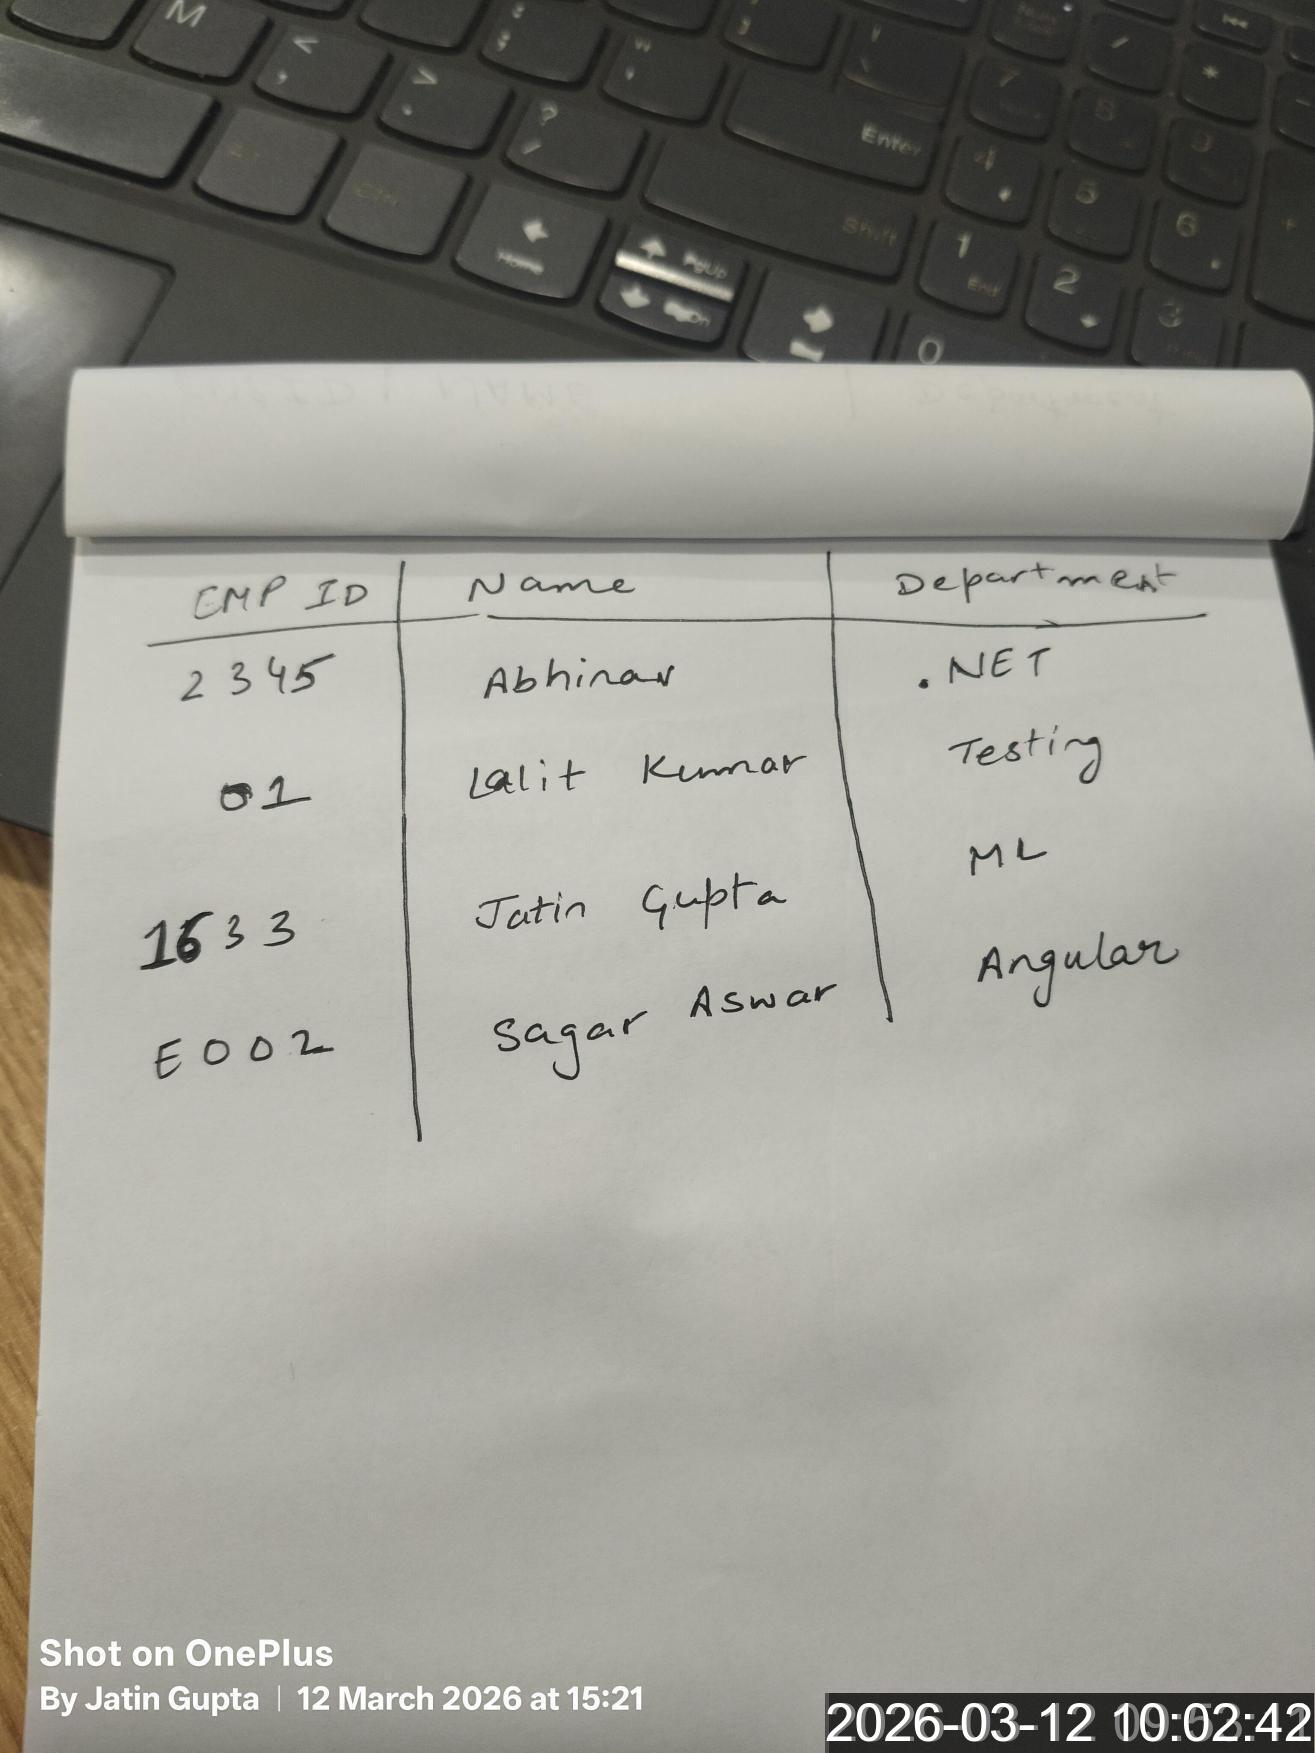 M
Enter
Shift
Home
PgUp
7
4
5
6
1
End
2
3
0
EMP ID Name Department
2345 Abhinav .NET
01 Lalit Kumar Testing
1633 Jatin Gupta ML
E002 Sagar Aswar Angular
Shot on OnePlus
By Jatin Gupta | 12 March 2026 at 15:21
2026-03-12 10:02:42